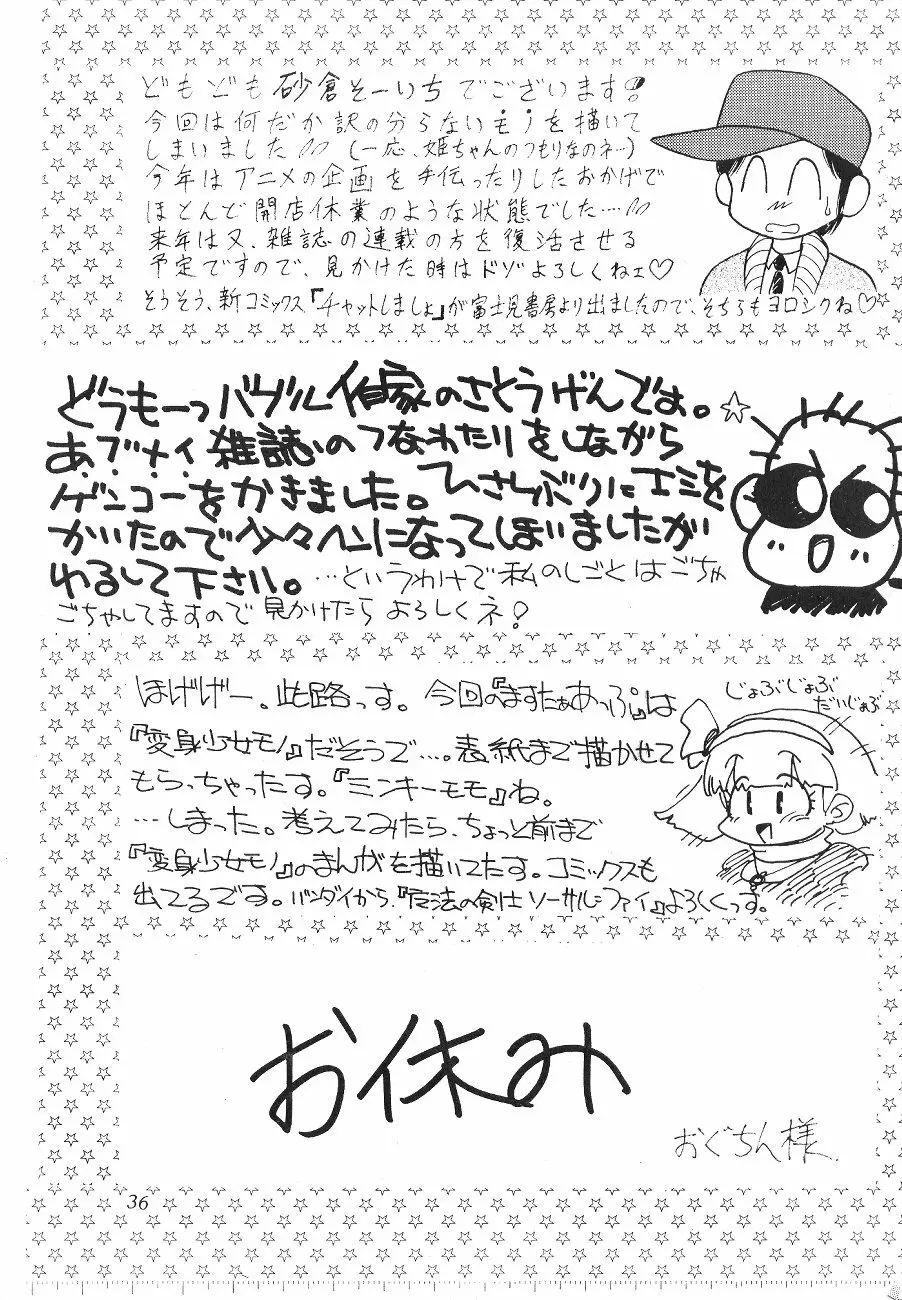 どもども砂倉そーいちでございます!
今回は何だか訳の分らないモノを描いて
しまいました (一応、姫ちゃんのつもりなのネ…)
今年はアニメの企画を手伝ったりしたおかげで
ほとんど開店休業のような状態でした…
来年は又、雑誌の連載の方を復活させる
予定ですので、見かけた時はドゾよろしくねェ♡
そうそう、新コミックス『チャットしましょ』が富士見書房より出ましたので、そちらもヨロシクね♡
どうもーっバブル作家のさとうげんです。☆
あ・ブ・ナ・イ雑誌のつなわたりをしながら
ゲンコーをかきました。ひさしぶりにエミを
かいたので少々ヘンになってしまいましたが
わるして下さい。…というわけで私のしごとはごちゃ
ごちゃしてますので見かけたらよろしくネ!
じょぶじょぶ
だいじょぶ
ほげげー。此路っす。今回の『ますたぁあっぷ』は
『変身少女モノ』だそうで…。表紙まで描かせて
もらっちゃったす。『ミンキーモモ』ね。
…しまった。考えてみたら、ちょっと前まで
『変身少女モノ』のまんがを描いてたす。コミックスも
出てるです。バンダイから『魔法の剣士ソーサル=ファイ』よろしくっす。
お休み
おぐちん様
36